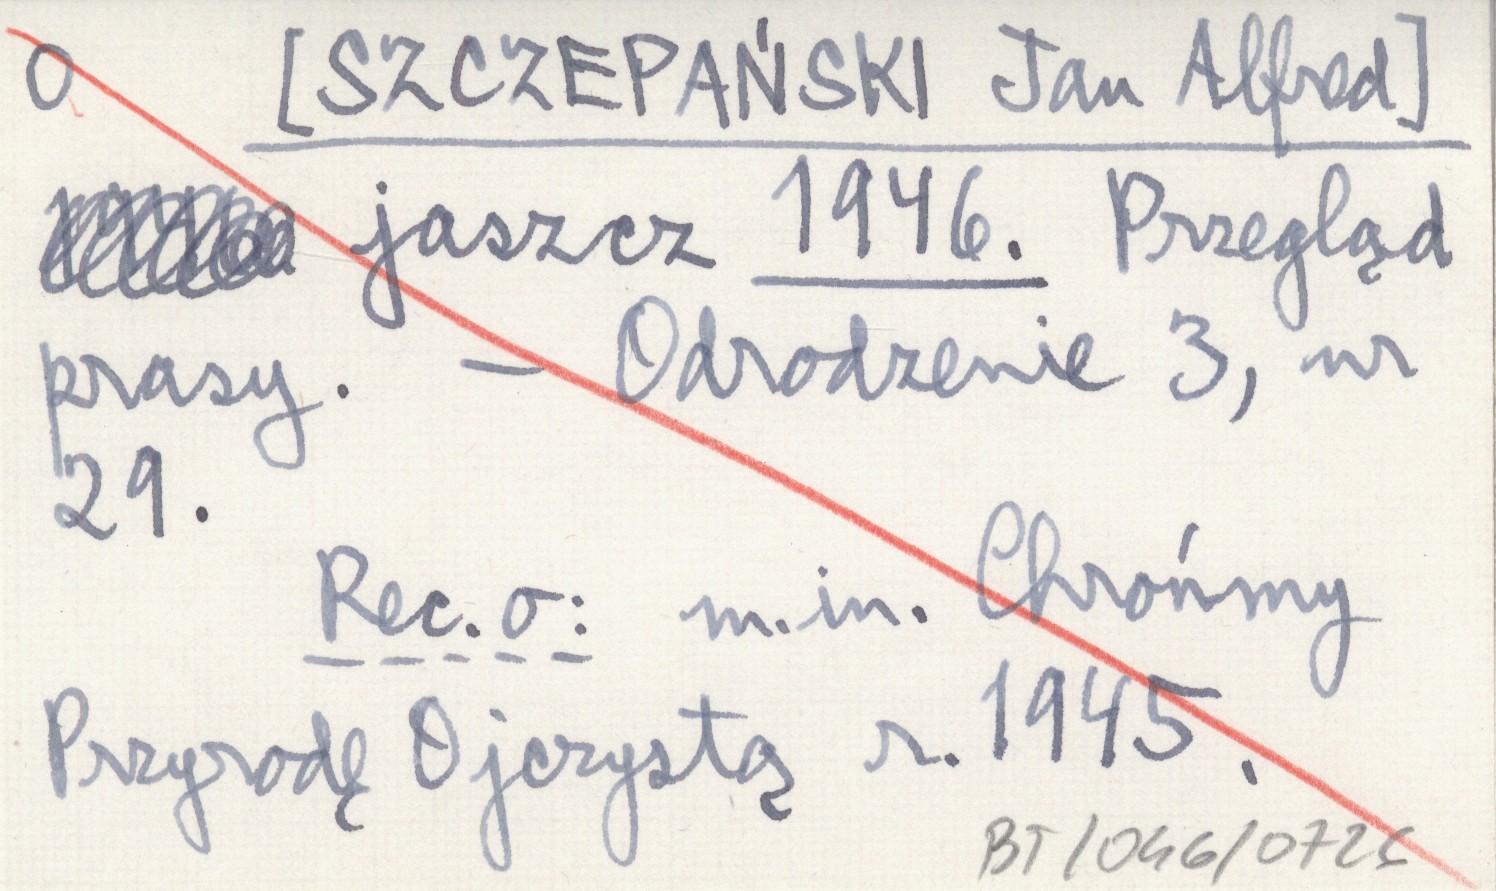 O [SZCZEPAŃSKI Jan Alfred]
jaszcz 1946. Przegląd
prasy. – Odrodzenie 3, nr
29.
Rec. o: m.in. Chrońmy
Przyrodę Ojczystą r. 1945.